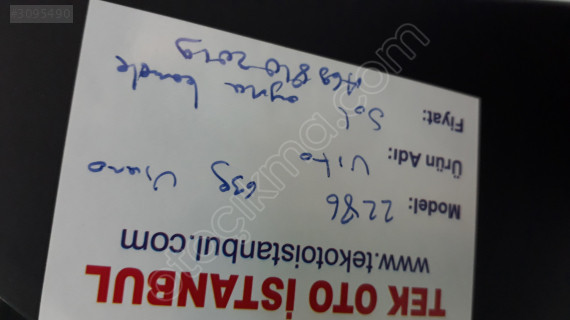 TEK OTO İSTANBUL
www.tekotoistanbul.com
Model: 2286 639 Viano
Ürün Adı: Vito
Fiyat: Sol ayna kapak
#3095490
otoçıkma.com